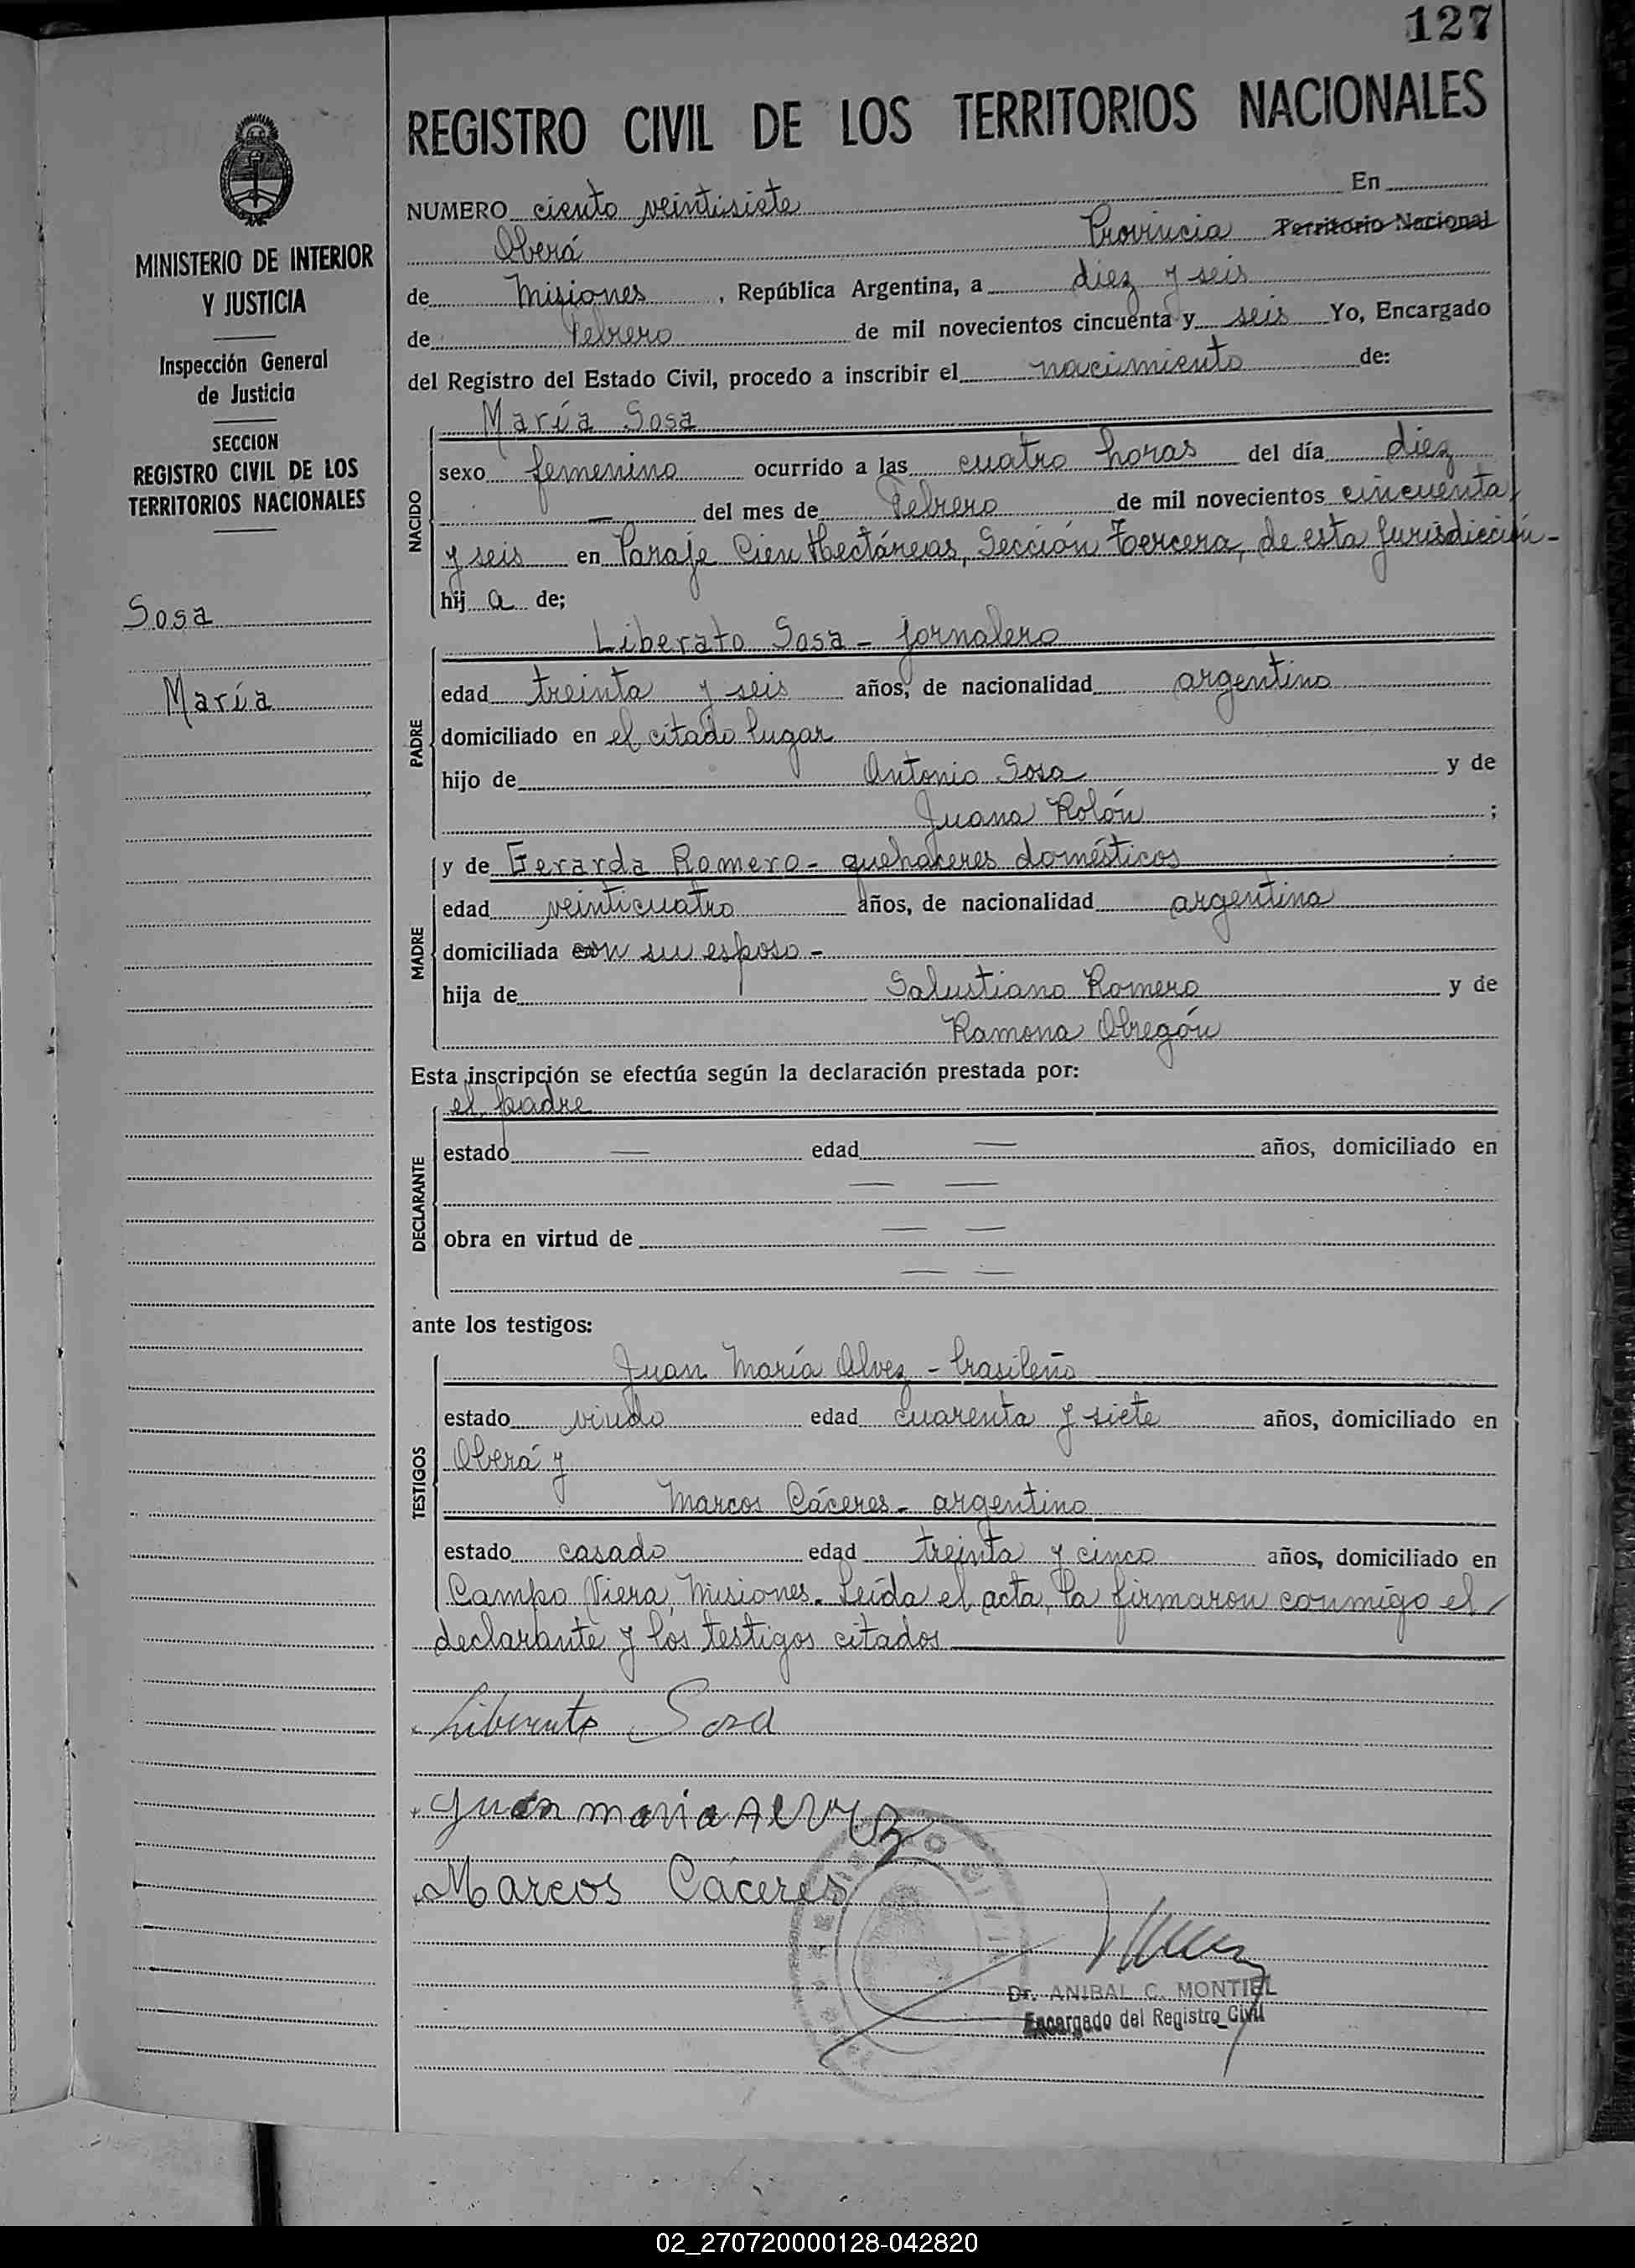 127
REGISTRO CIVIL DE LOS TERRITORIOS NACIONALES
MINISTERIO DE INTERIOR
Y JUSTICIA
Inspección General
de Justicia
SECCION
REGISTRO CIVIL DE LOS
TERRITORIOS NACIONALES
Sosa
María
NUMERO ciento veintisiete En
Oberá Provincia Territorio Nacional
de Misiones , República Argentina, a diez y seis
de Febrero de mil novecientos cincuenta y seis Yo, Encargado
del Registro del Estado Civil, procedo a inscribir el nacimiento de:
NACIDO
María Sosa
sexo femenino ocurrido a las cuatro horas del día diez
— del mes de Febrero de mil novecientos cincuenta
y seis en Paraje Cien Hectáreas, Sección Tercera, de esta Jurisdicción-
hij a de;
PADRE
Liberato Sosa - jornalero
edad treinta y seis años, de nacionalidad argentino
domiciliado en el citado lugar
hijo de Antonio Sosa y de
Juana Rolón ;
MADRE
y de Gerarda Romero - quehaceres domésticos
edad veinticuatro años, de nacionalidad argentina
domiciliada con su esposo -
hija de Salustiano Romero y de
Ramona Obregón
Esta inscripción se efectúa según la declaración prestada por:
DECLARANTE
el padre
estado — edad — años, domiciliado en
— —
obra en virtud de — —
— —
ante los testigos:
TESTIGOS
Juan María Alvez - brasileño
estado viudo edad cuarenta y siete años, domiciliado en
Oberá y
Marcos Cáceres - argentino
estado casado edad treinta y cinco años, domiciliado en
Campo Viera, Misiones. Leída el acta, la firmaron conmigo el
declarante y los testigos citados
Liberato Sosa
Juan maria Alvez
Marcos Cáceres
Dr. ANIBAL C. MONTIEL
Encargado del Registro Civil
02_270720000128-042820